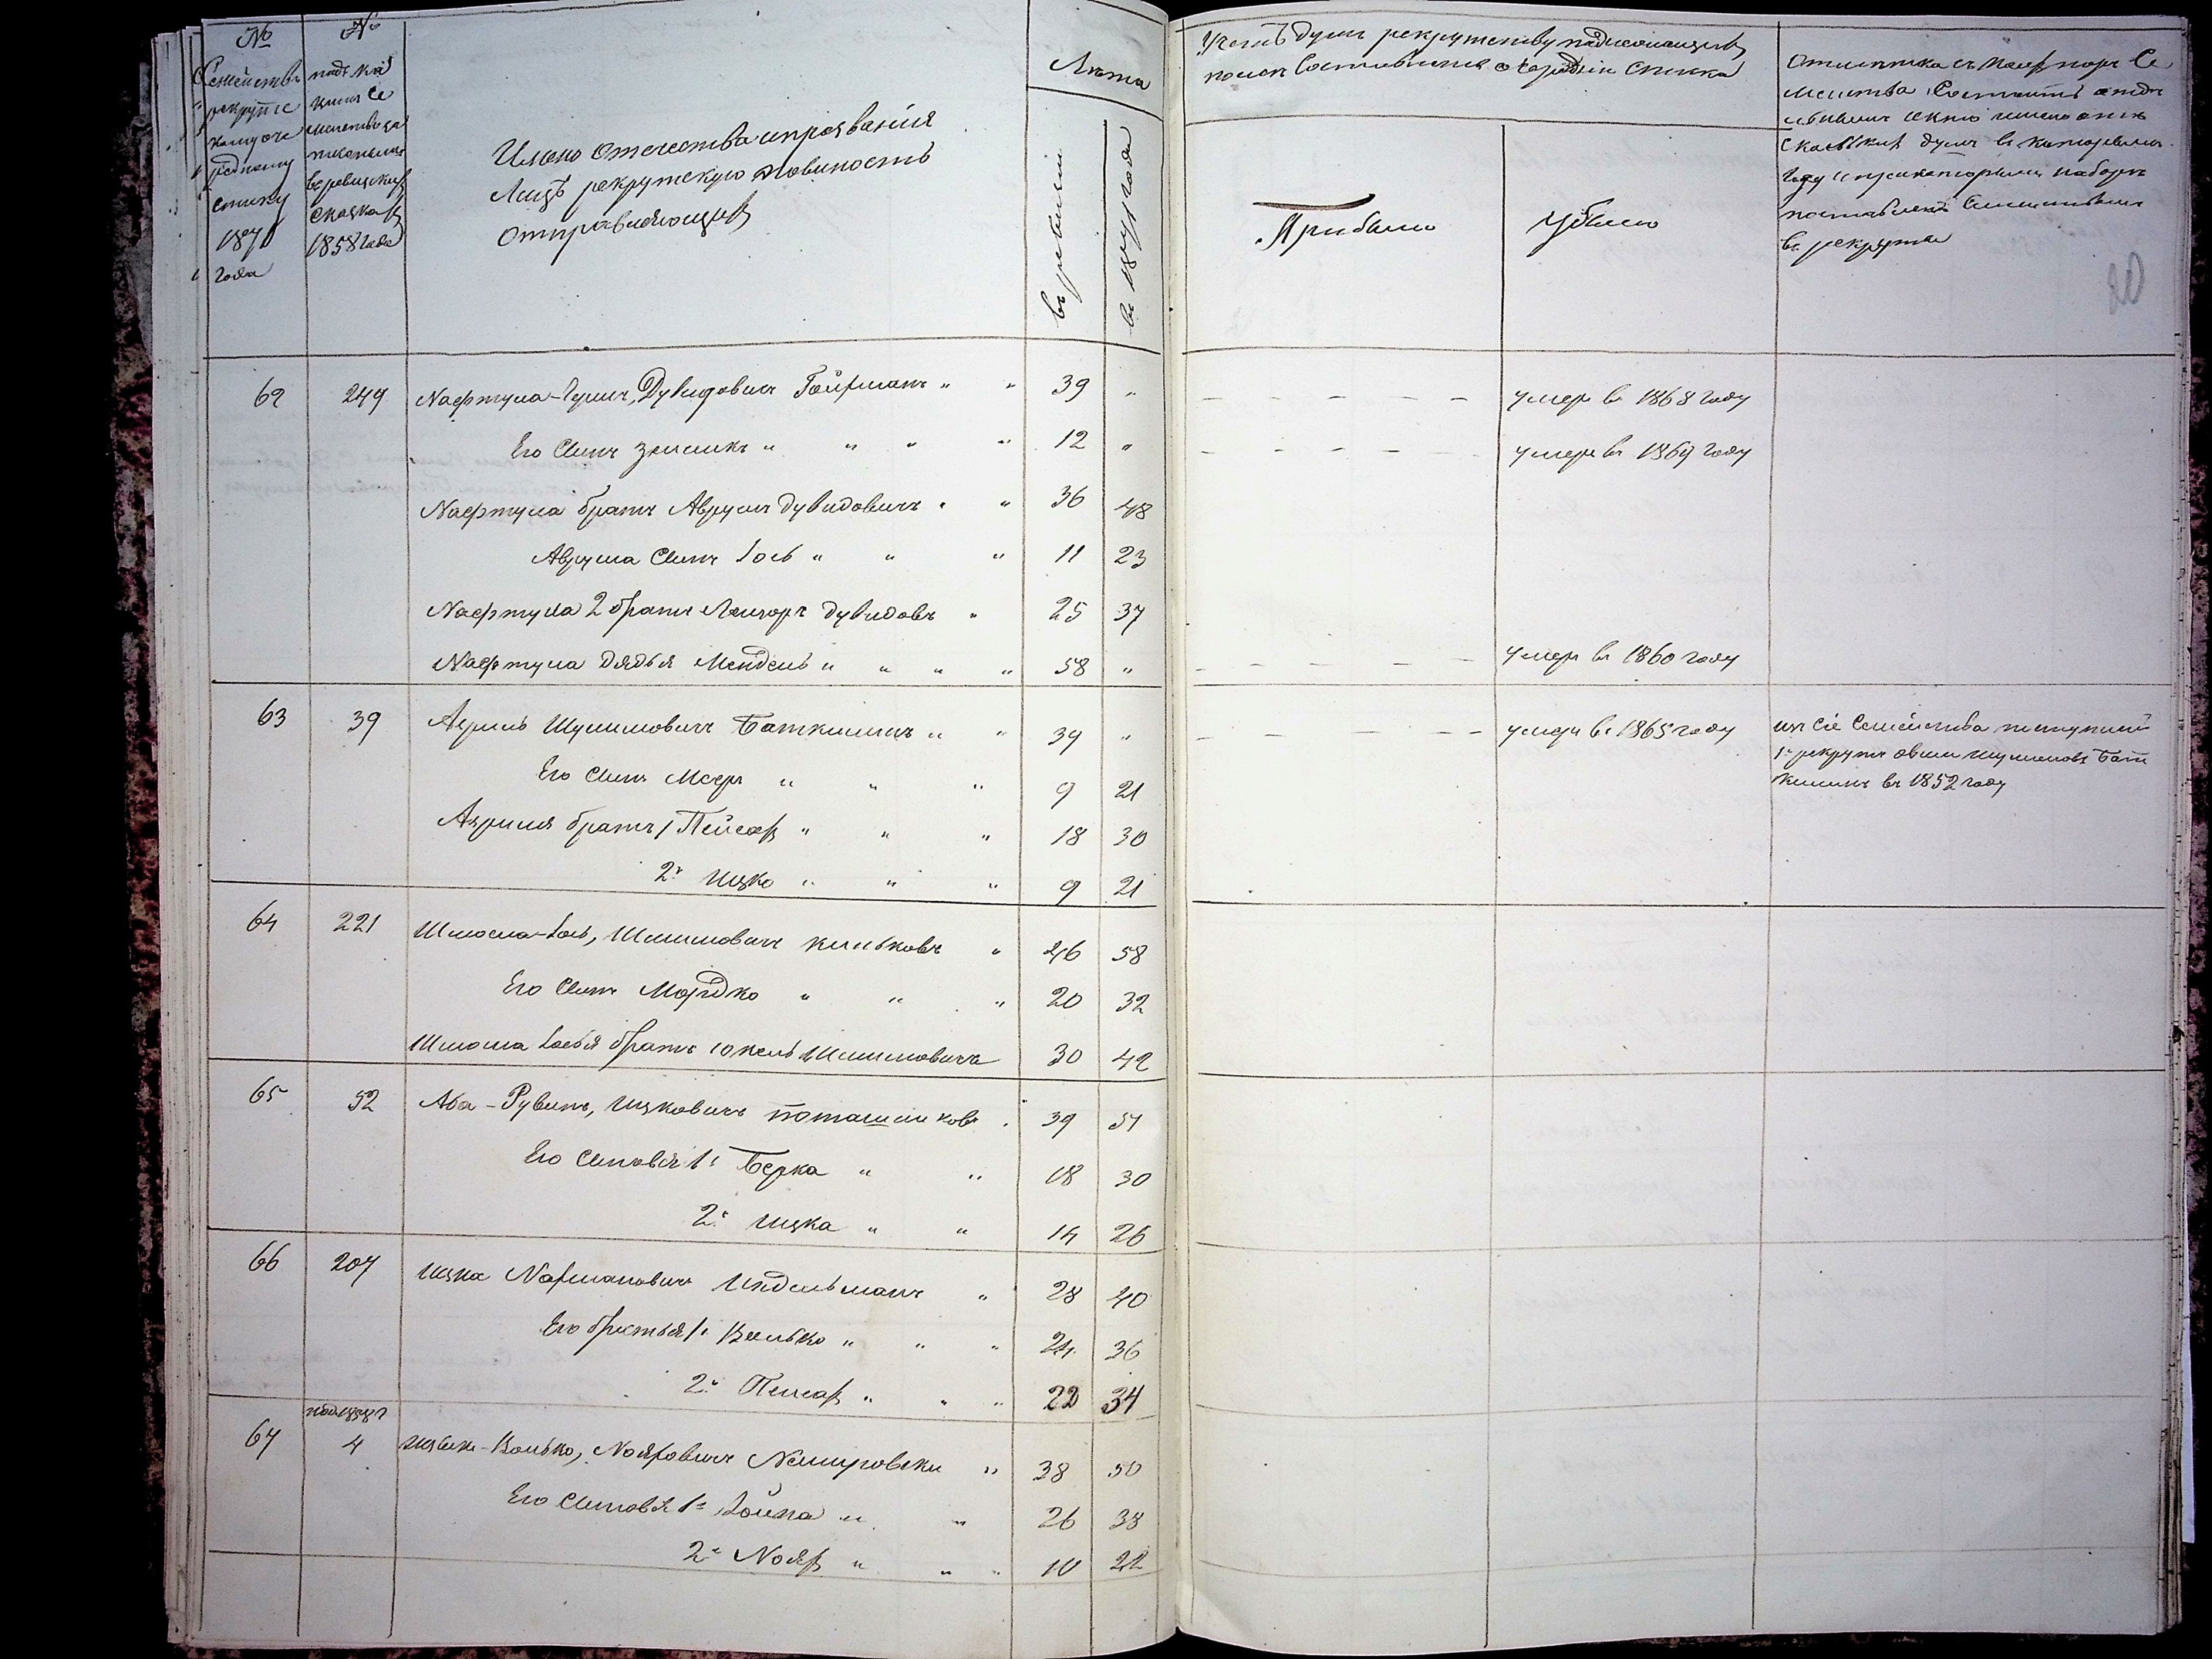 №
Семейства
рекрутс
кому оче
редному
списку
1870
года
№
подъ ка
кимъ Се
мейство за
писаны
въ ревизских
сказках
1858 года
Имена отечества и прозвания
Лицъ рекрутскую повиность
отправляющих
Лета
въ ревизии
въ 1870 году
Учетъ душъ рекрутству подлежащихъ
после составления о череднымъ списка
Прибыло
Убыло
Семейства Состоитъ
сколькихъ душъ въ которомъ
году наборъ
поставленъ Семействомъ
въ рекруты
20
62 249 Нафтула-Гершъ, Дувидовичъ Гойхманъ " " 39 " — — — — — умеръ въ 1868 году
Его Сынъ Зейликъ " " " " 12 " — — — — — умеръ въ 1869 году
Нафтула братъ Аврумъ Дувидовичъ " " 36 48
Аврума Сынъ Іось " " " 11 23
Нафтула 2 братъ Лейзоръ Дувидовъ " 25 37
Нафтула дядья Мендель " " " " 58 " — — — — — умеръ въ 1860 году
63 39 Азриль Шулимовичъ Баткилинъ " " 39 " — — — — — умеръ въ 1865 году
изъ сіе Семейства поступилъ
1 рекрутъ Овши Шулимовъ Бат
килинъ въ 1852 году
Его Сынъ Меер " " " 9 21
Азриля братъ 1 Пейсах " " " 18 30
2й Ицко " " " 9 21
64 221 Шмойла-Іось, Шлимовичъ Кильковъ " 46 58
Его Сынъ Мордко " " " 20 32
Шмойла Іося братъ Юкель Шлимовичъ 30 42
65 52 Аба-Рувинъ, Ицковичъ Поташниковъ " 39 51
Его Сыновья 1й Берка " " 18 30
2й Ицка " " 14 26
66 207 Ицка Нахмановичъ Индельманъ " 28 40
Его братья 1й Волько " " " 24 36
2й Пейсах " " " 22 34
67 4 Волько, Нояховичъ Немировски " 38 50
Его Сыновья 1й Іойна " " 26 38
2йНоях " " " 10 22